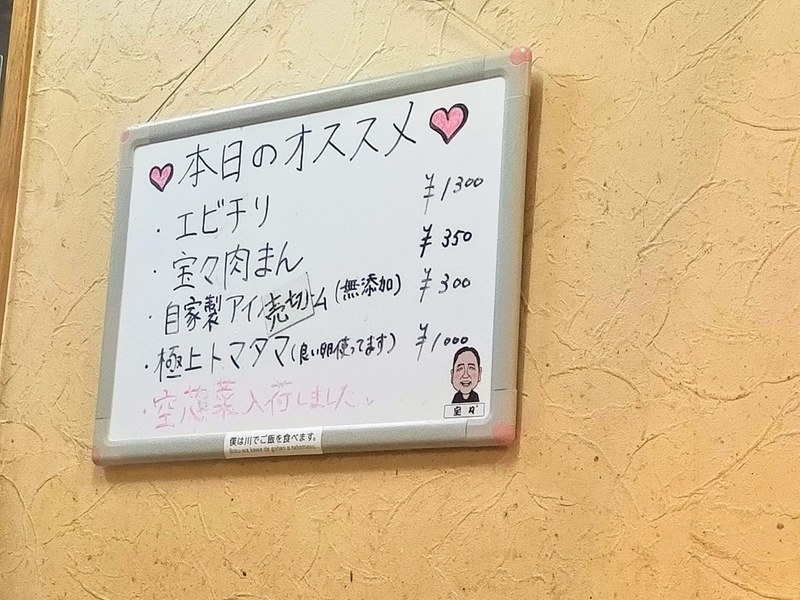 本日のオススメ
・エビチリ ¥1300
・宝々肉まん ¥350
・自家製アイ売切ム(無添加) ¥300
・極上トマタマ(良い卵使ってます) ¥1000
・空芯菜入荷しました
宝々
僕は川でご飯を食べます。
Boku wa kawa de gohan o tabemasu.